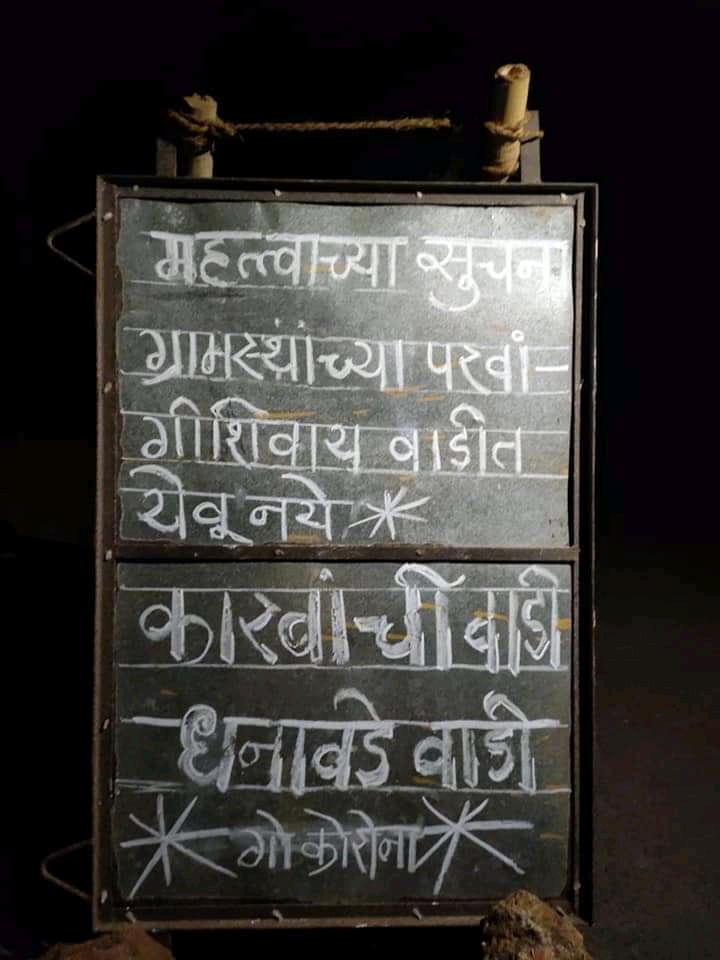 महत्त्वाच्या सुचना
ग्रामस्थांच्या परवां-
गीशिवाय वाडीत
येवू नये *
कारबांची वाडी
धनावडे वाडी
* गो कोरोना *